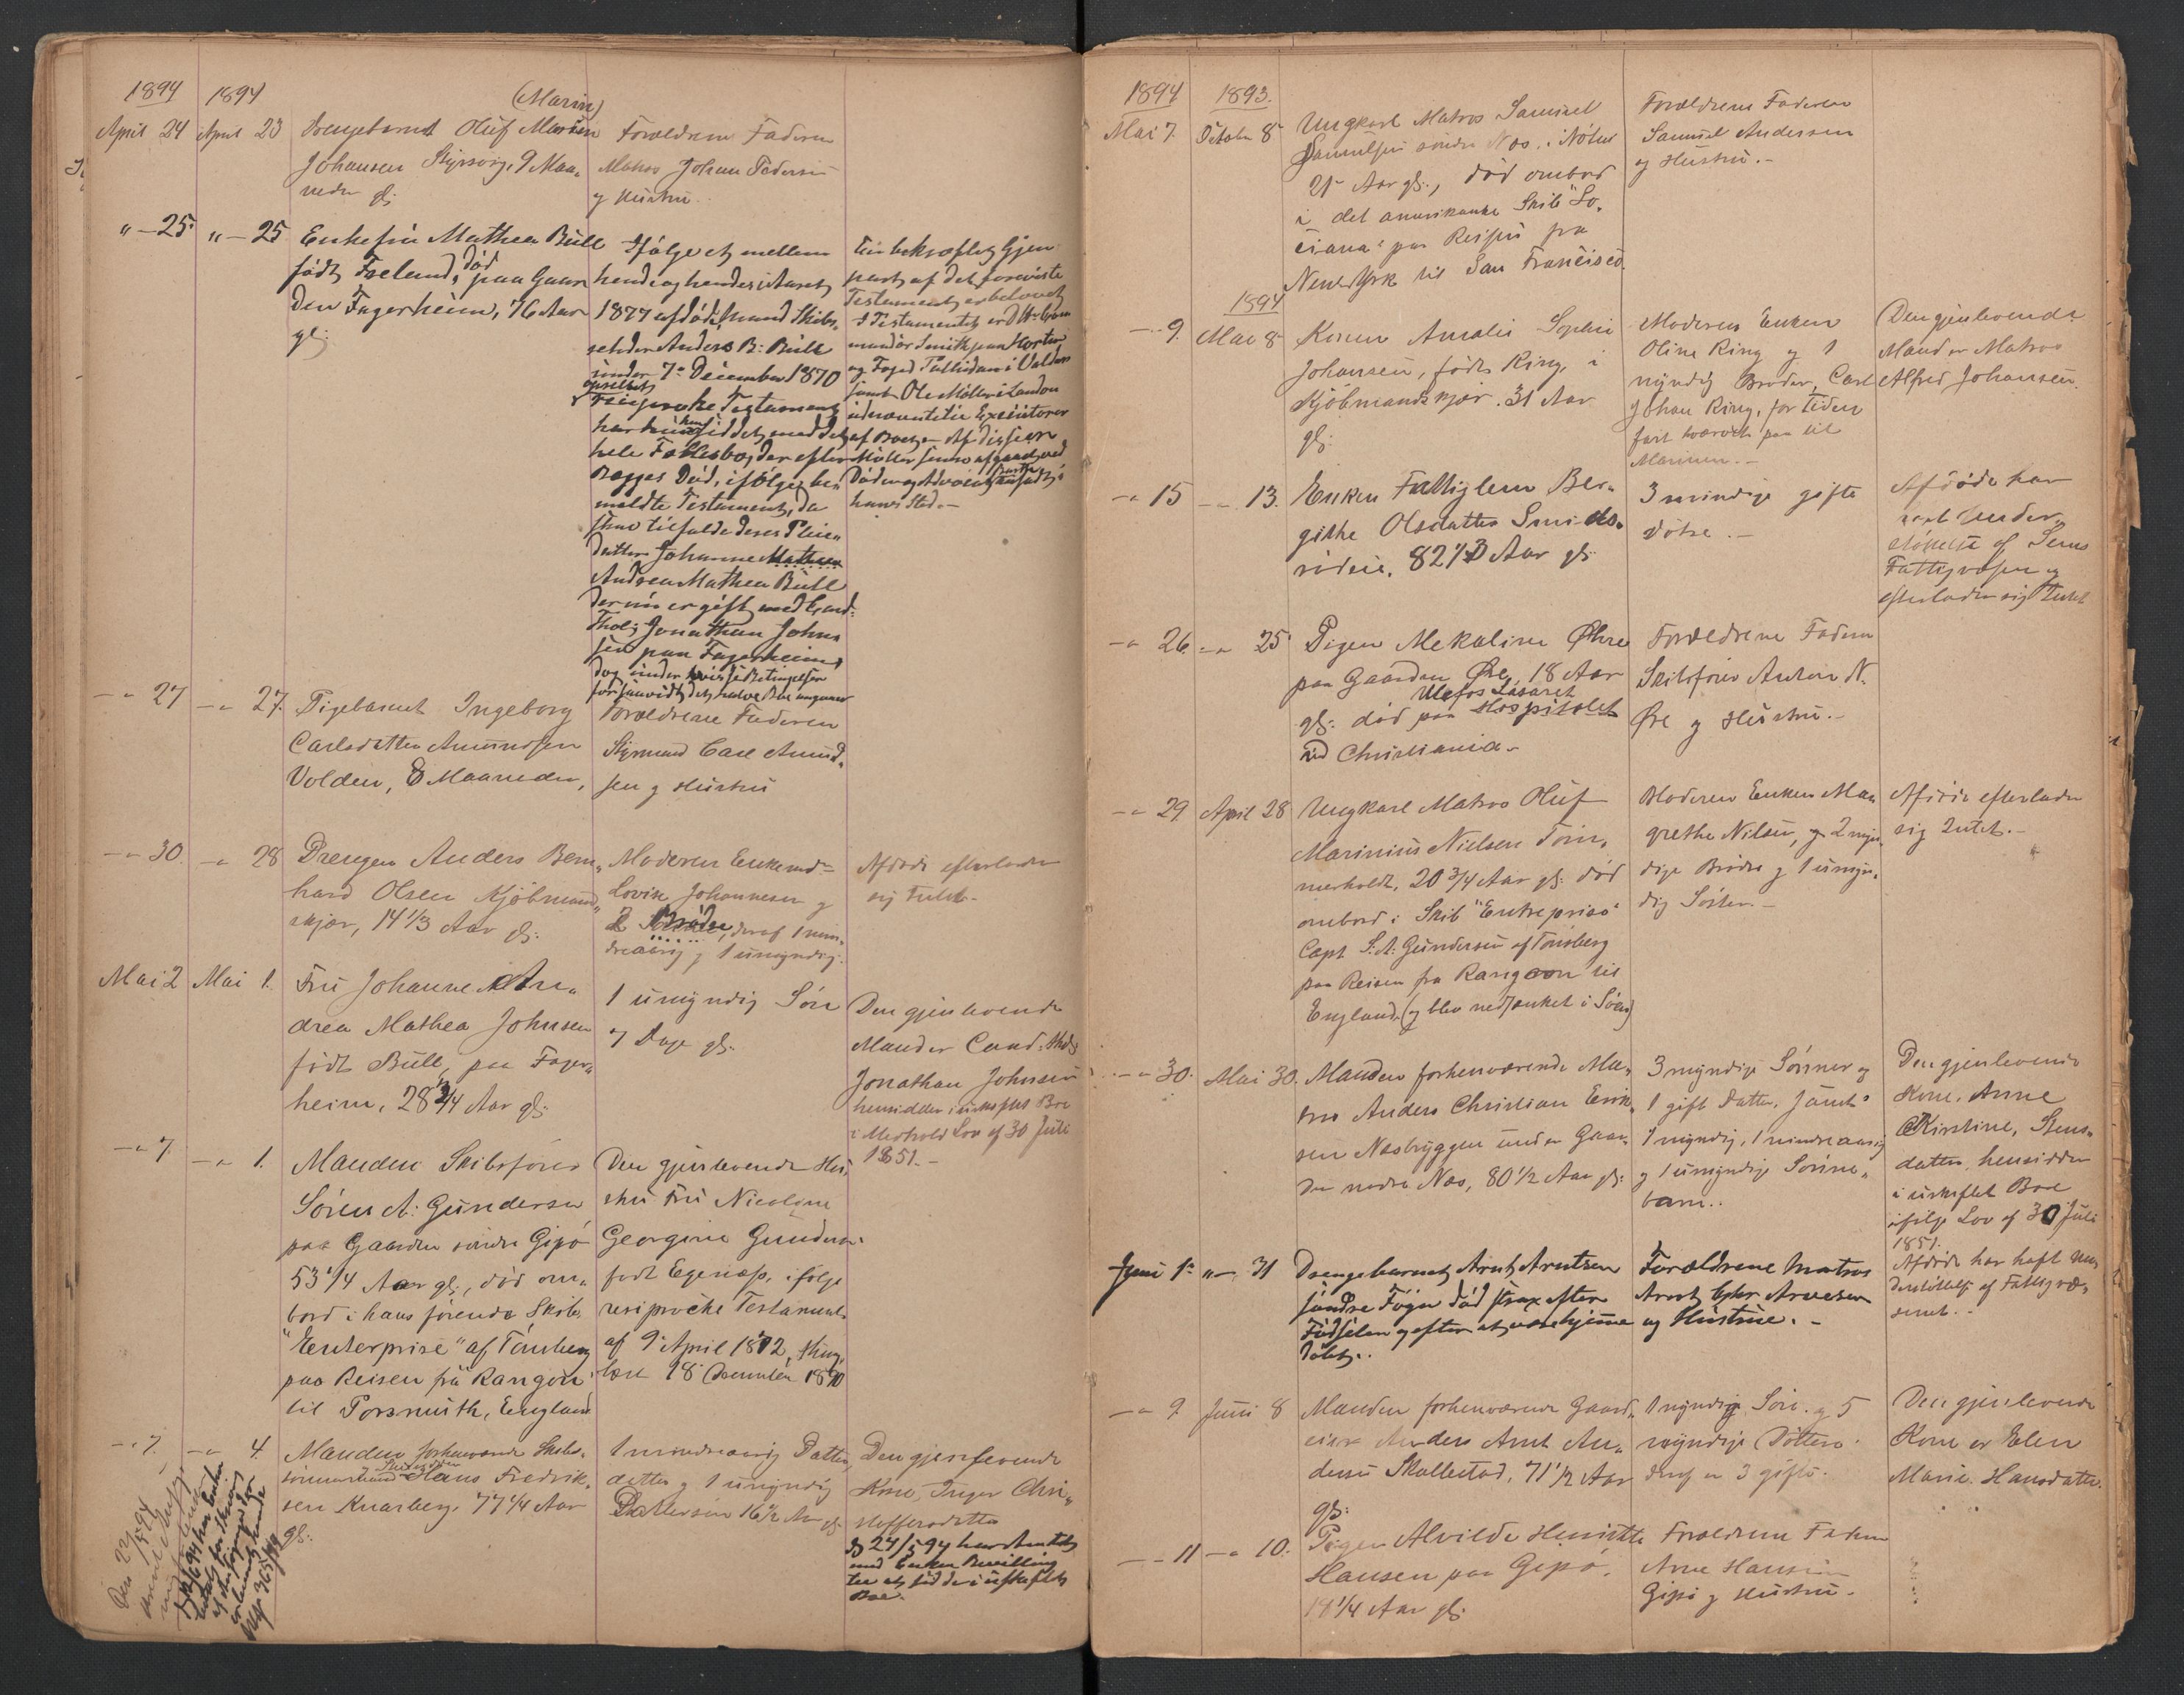 1894
1894
April 24
April 23
Drengebarnet Oluf Marius
(Marin)
Johansen Styrsvig, 9 Maa„
neder gl:
Forældrene Faderen
Matros Johan Pedersen
og Hustru.
" — 25
" — 25
Enkefru Mathea Büll
født Foeland, død paa Gaar
den Fagerheim, 76 Aar
gl:
Ifølge et mellem
hende og hendes i Aaret
1877 afdøde Mand Skibs„
rheder Anders B. Büll
under 7de December 1870
oprettet
resiproke Testament
har hun siddet med det
hele Fællesbo, der efter
Begges Død, ifølge be„
meldte Testament, da
skal tilfalde deres Pleie„
datter Johanne Mathea
Andrea Mathea Büll
der nu er gift med Cand:
Theol: Jonathan Johns
sen paa Fagerheim,
dog under visse Betingelser
forsaavidt det halve Boe angaaer
En bekræftet Gjen
part af det foreviste
Testament er belovet
I Testamentet er
Smith paa Horten
og Foged i Valders
samt Ole Møller i London
udnævnte til Executorer
af Boet. Af disse er
Møller senere afgaaet ved
Døden og Advocat indsat i
hans Sted. —
— " 27
— " 27.
Pigebarnet Ingeborg
Carlsdatter Amundsen
Volden, 8 Maaneder,
Forældrene Faderen
Styrmand Carl Amund„
sen og Hustru
— " 30.
— " 28
Drengen Anders Bern„
hard Olsen Kjøbmand„
skjær, 14 1/3 Aar gl:
Moderen Enkemd=
Lovise Johannesen og
2 Brødre, deraf 1 min„
dreaarig og 1 umyndig.
Afdøde efterlader
sig Intet. —
Mai 2
Mai 1.
Fru Johanne An„
drea Mathea Johnsen
født Büll, paa Fager„
heim, 28 3/4 Aar gl:
1 umyndig Søn
7 Dage gl:
Den gjenlevende
Mand er Cand. theol.
Jonathan Johnsen
hensidder i uskiftet Boe
i Medhold Lov af 30 Juli
1851. —
— " 7.
— " 1.
Manden Skibsfører
Søren A: Gundersen
paa Gaarden søndre Gipø
53 1/4 Aar gl:, død om„
bord i hans førende Skib
"Enterprise" af Tønsberg
paa Reisen fra Rangon
til Porsmuth, England
Den gjenlevende Hu„
stru Fru Nicoline
Georgine Gundersen
født Egenæss, ifølge
resiproche Testament
af 9 April 1872, thing„
læst 18 December 1890
— " 7.
— " 4.
Manden forhenværende Skibs„
tømmermand Hans Fredrik„
sen Knarberg. 77 1/4 Aar
gl:
1 mindreaarig Datter„
datter og 1 umyndig
Dattersøn 16 1/2 Aar gl:
Den gjenlevende
Kone, Inger Chri„
stoffersdatter
D. 24/5 94 har Amtet
med Enken Bevilling
til at sidde i uskiftet
Boe.
1894
1893.
Mai 7.
October 8
Ungkarl Matros Samuel
Samuelsen søndre Næs i Nøtterø
21 Aar gl:, død ombord
i det amerikanske Skib "Lo„
isiana" paa Reisen fra
New York til San Francisco.
Forældrene Faderen
Samuel Andersen
og Hustru. —
1894
— " 9.
Mai 8
Konen Amalie Sophie
Johansen, født Ring, i
Kjøbmandskjær. 31 Aar
gl:
Moderen Enken
Oline Ring og 1
myndig Broder, Carl
Johan Ring, for Tiden
fast hvervet paa til
Marinen. —
Den gjenlevende
Mand er Matros
Alfred Johansen.
— " 15
— " 13.
Enken Fattiglem Ber„
githe Olsdatter Smids„
rødeie, 82 1/3 Aar gl:
3 myndige gifte
Døtre. —
Afdøde har
havt Under„
støttelse af Sems
Fattigvæsen og
efterlader sig Intet
— " 26.
— " 25
Pigen Mekaline Øhre
paa Gaarden Øre, 18 Aar
Ulefos Lasaret
gl: død paa Hospitalet
ved Christiania. —
Forældrene Faderen
Skibsfører Anton N.
Øre og Hustru. —
— " 29.
April 28
Ungkarl Matros Oluf
Marinius Nielsen Tøm„
merholdt, 20 3/4 Aar gl: død
ombord i Skib "Entreprise"
Capt S: A: Gundersen af Tønsberg
paa Reisen fra Rangoon til
England (og blev nedsænket i Søen)
Moderen Enken Mar„
grethe Nilsen, og 2 myn„
dige Brødre og 1 umyn„
dig Søster. —
Afdøde efterlader
sig Intet. —
— " 30.
Mai 30.
Manden forhenværende Ma„
tros Anders Christian Erik„
sen Næsbryggen under Gaar„
den nedre Næs, 80 1/2 Aar gl:
3 myndige Sønner og
1 gift Datter. Samt
1 myndig, 1 mindreaarig
og 1 umyndige Sønne„
børn..
Den gjenlevende
Kone, Anne
Kirstine, Stens„
datter, hensidder
i uskiftet Boe
ifølge Lov af 30 Juli
1851.
Afdøde har haft Un„
derstøttelse af Fattigvæ„
senet. —
Juni 1.
" — 31
Drengebarnet Arnt Arntsen
søndre Føgn død strax efter
Fødselen og efter at være hjemme
døbt..
Forældrene Matros
Arnt Chr. Arnesen
og Hustrue. —
— " 9.
Juni 8
Manden forhenværende Gaard„
eier Anders Arnt An„
dersen Skallestad, 71 1/2 Aar
gl:
1 myndig Søn og 5
myndige Døttre
deraf er 3 gifte.
Den gjenlevende
Kone er Elen
Marie Hansdatter.
— " 11
— " 10.
Pigen Alvilde Henriette
Hansen paa Gipø.
18 1/4 Aar gl:
Forældrene Faderen
Arne Hansen
Gipø og Hustru. —